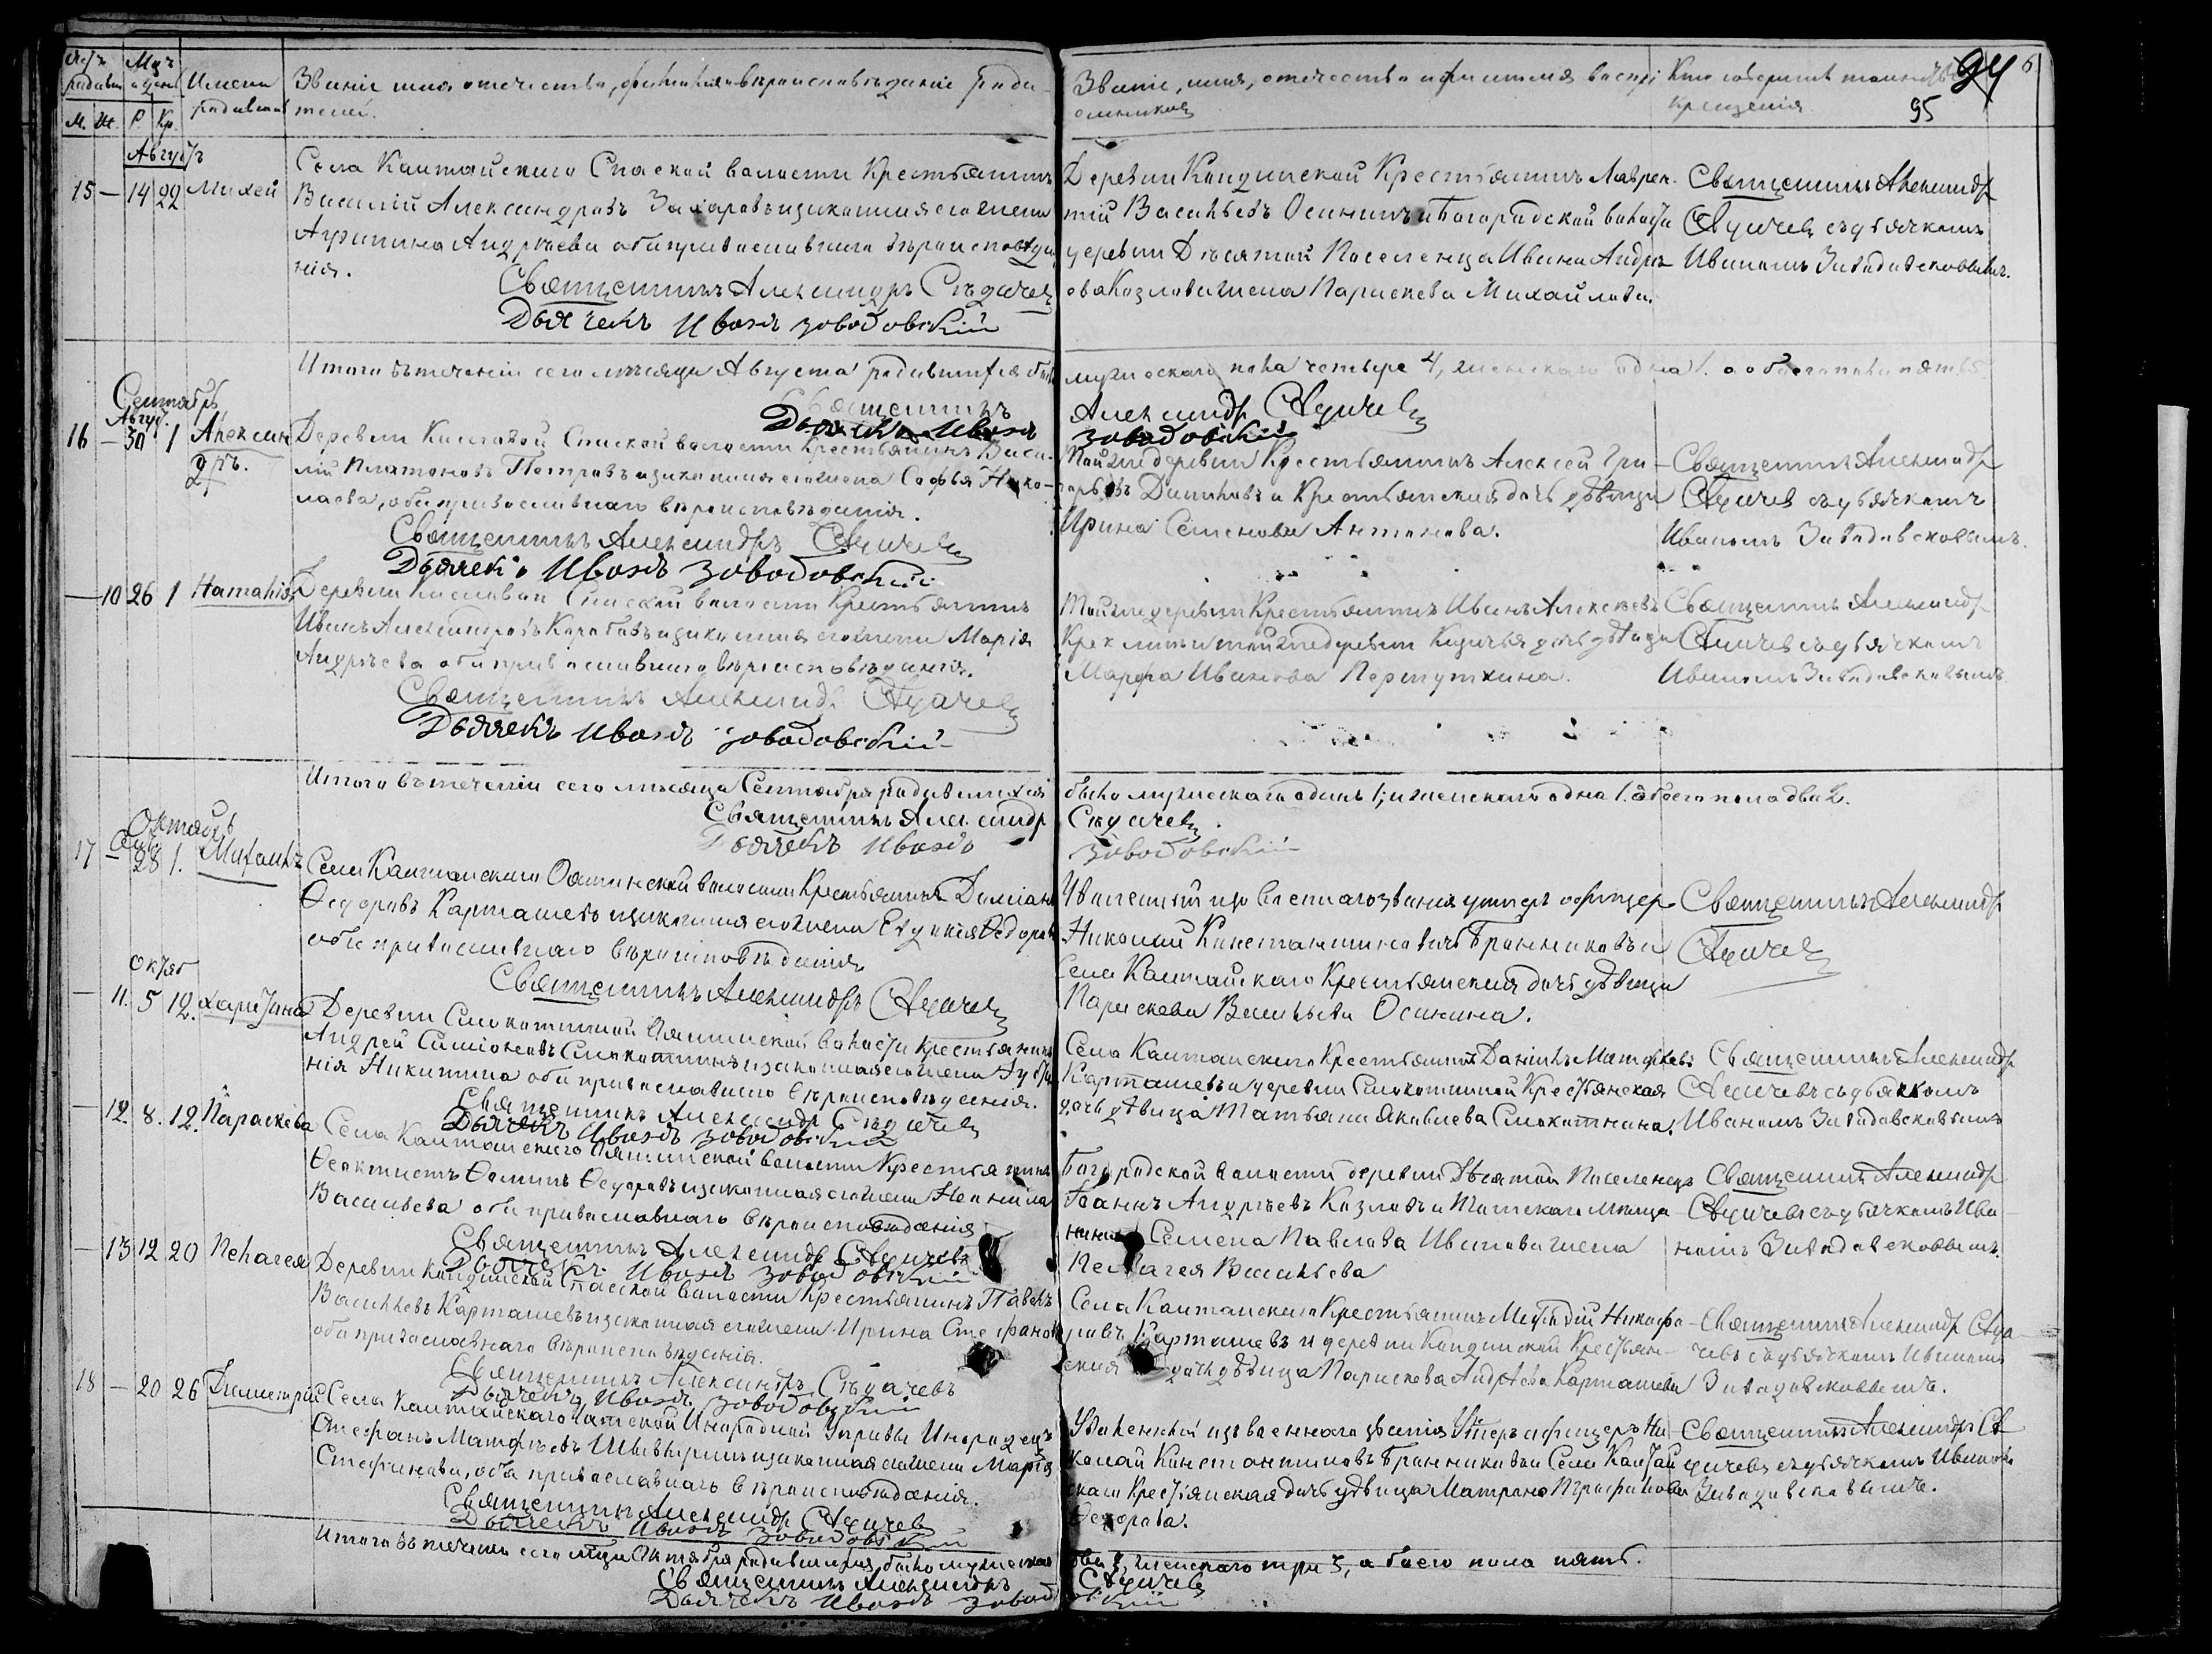 Имена
Званіе имя отечество, фамилія и вероисповѣданіе роди-
телей.
М. Ж. Р. Кр.
Званіе, имя, отечество и фамилія воспрі-
емниковъ
Кто совершилъ таинство
крещенія
94
95
Августъ
15 — 14 22 Михей
Села Каштайскаго Спаской волости Крестьянинъ
Василій Александровъ Захаровъ и законная его жена
Агрипина Андреева оба православнаго вѣроисповѣда-
нія.
Священникъ Александръ Сѣдачевъ
Дьячекъ Иванъ Заводовскій
Деревни Кандинской Крестьянинъ Лаврен-
тій Васильевъ Осининъ и Богородской волости
деревни Десятой Поселенца Ивана Андре-
ева Козлова жена Параскева Михайлова.
Священникъ Александръ
Сѣдачевъ съ дьячкомъ
Иваномъ Заводовсковымъ.
Итого въ теченіи сего мѣсяца Августа родившихся было
мужескаго пола четыре 4, женскаго одна 1. а обоего пола пять 5
Священникъ Александръ Сѣдачевъ
Дьячекъ Иванъ Заводовскій
Сентябрь
Авгус.
16 — 30 1 Александръ.
Деревни Киселевой Спаской волости Крестьянинъ Васи-
лій Платоновъ Петровъ и законная его жена Софья Нико-
лаева, оба православнаго вѣроисповѣданія.
Священникъ Александръ Сѣдачевъ
Дьячекъ Иванъ Заводовскій
Той же деревни Крестьянинъ Алексей Гри-
горьевъ и Крестьянская дочь дѣвица
Ирина Семенова Антонова.
Священникъ Александръ
Сѣдачев съ дьячкомъ
Иваномъ Заводовсковымъ.
— 10 26 1 Наталія
Деревни Киселевой Спаской волости Крестьянинъ
Иванъ Александровъ Коробовъ и законная его жена Марія
Андреева оба православнаго вѣроисповѣданія.
Священникъ Александръ Сѣдачевъ
Дьячекъ Иванъ Заводовскій
Той же деревни Крестьянинъ Иванъ Алексеевъ
и той же деревни дочь дѣвица
Марфа Иванова
Священникъ Александръ
Сѣдачевъ съ дьячкомъ
Иваномъ Заводовсковымъ.
Итого въ теченіи сего мѣсяца Сентября родившихся
было мужескаго одинъ 1; и женскаго одна 1. а обоего пола два 2.
Священникъ Александръ Сѣдачевъ
Дьячекъ Иванъ Заводовскій
Октябрь
Сент.
17 — 28 1. Михаилъ
Села Каштайскаго волости Крестьянинъ Даміанъ
Ѳедоровъ Карташевъ и законная его жена Евдокія Ѳедорова
оба православнаго вѣроисповѣданія
Священникъ Александръ Сѣдачевъ
Уволенный изъ военнаго званія унтеръ офицер
Николай Константиновичъ Бранниковъ и
Села Каштайскаго Крестьянская дочь дѣвица
Параскева Васильева Осинина.
Священникъ Александръ
Сѣдачевъ
Октяб
— 11. 5 12. Харитина
Деревни Смокотиной волости Крестьянинъ
Андрей Симіоновъ Смокотинъ и законная его жена
Никитина оба православнаго вѣроисповѣданія.
Священникъ Александръ Сѣдачевъ
Дьячекъ Иванъ Заводовскій
Села Каштайскаго Крестьянинъ Даніилъ Матфеевъ
Карташевъ и деревни Смокотиной Крестьянская
дочь дѣвица Татьяна Яковлева Смокотнина.
Священникъ Александръ
Сѣдачевъ съ дьячкомъ
Иваномъ Заводовсковымъ
— 12. 8. 12. Параскева
Села Каштайскаго волости Крестьянинъ
Ѳеоктистъ Ѳоминъ Ѳедоровъ и законная его жена Неонила
Васильева оба православнаго вѣроисповѣданія
Священникъ Александръ Сѣдачевъ
Дьячекъ Иванъ Заводовскій
Богородской волости деревни Десятой Поселенецъ
Іоаннъ Андреевъ Козловъ и Томскаго
Семена Павлова Иванова жена
Пелагея Васильева
Священникъ Александръ
Сѣдачевъ съ дьячкомъ Ива-
номъ Заводовсковымъ.
— 13 12 20 Пелагея
Деревни Кандинской Спаской волости Крестьянинъ Павелъ
Васильевъ Карташевъ и законная его жена Ирина Стефанова
оба православнаго вѣроисповѣданія.
Священникъ Александръ Сѣдачевъ
Дьячекъ Иванъ Заводовскій
Села Каштайскаго Крестьянинъ Мефодій Никифо-
ровъ Карташевъ и деревни Кандинской Крестьян-
ская дочь дѣвица Параскева Андреева Карташева
Священникъ Александръ Сѣда-
чевъ съ дьячкомъ Иваномъ
Заводовсковымъ.
18 — 20 26 Димитрій
Села Каштайскаго Инородной Управы Инородецъ
Стефанъ Матфѣевъ и законная его жена Марія
Стефанова, оба православнаго вѣроисповѣданія.
Священникъ Александръ Сѣдачевъ
Дьячекъ Иванъ Заводовскій
Уволенный изъ военнаго званія Унтеръ офицеръ Ни-
колай Константиновъ Бранниковъ и Села Каштай-
скаго Крестьянская дочь дѣвица Матрона
Ѳедорова.
Священникъ Александръ Сѣ-
дачевъ съ дьячкомъ Иваномъ
Заводовсковымъ.
Итого въ теченіи сего мѣсяца Октября родившихся было мужескаго
два 2, женскаго три 3, а обоего пола пять.
Священникъ Александръ Сѣдачевъ
Дьячекъ Иванъ Заводовскій